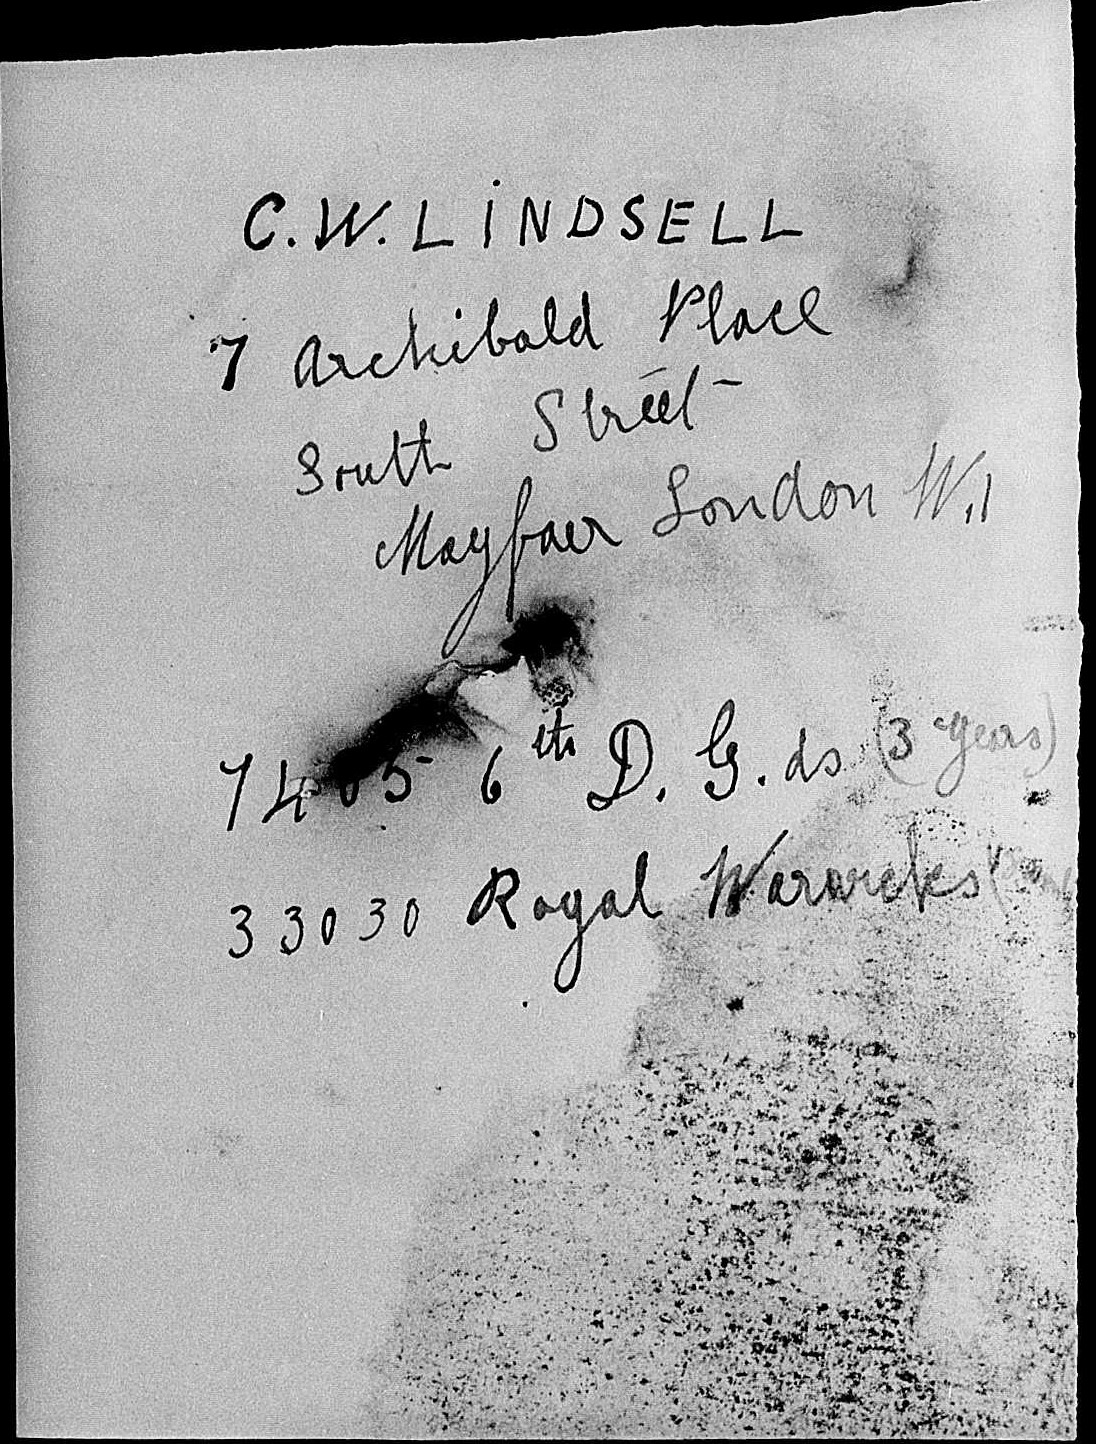 C. W. LINDSELL
7 Archibald Place
South Street
Mayfair London W.1
7405 6th D. G. ds (3 years)
33030 Royal Warwicks